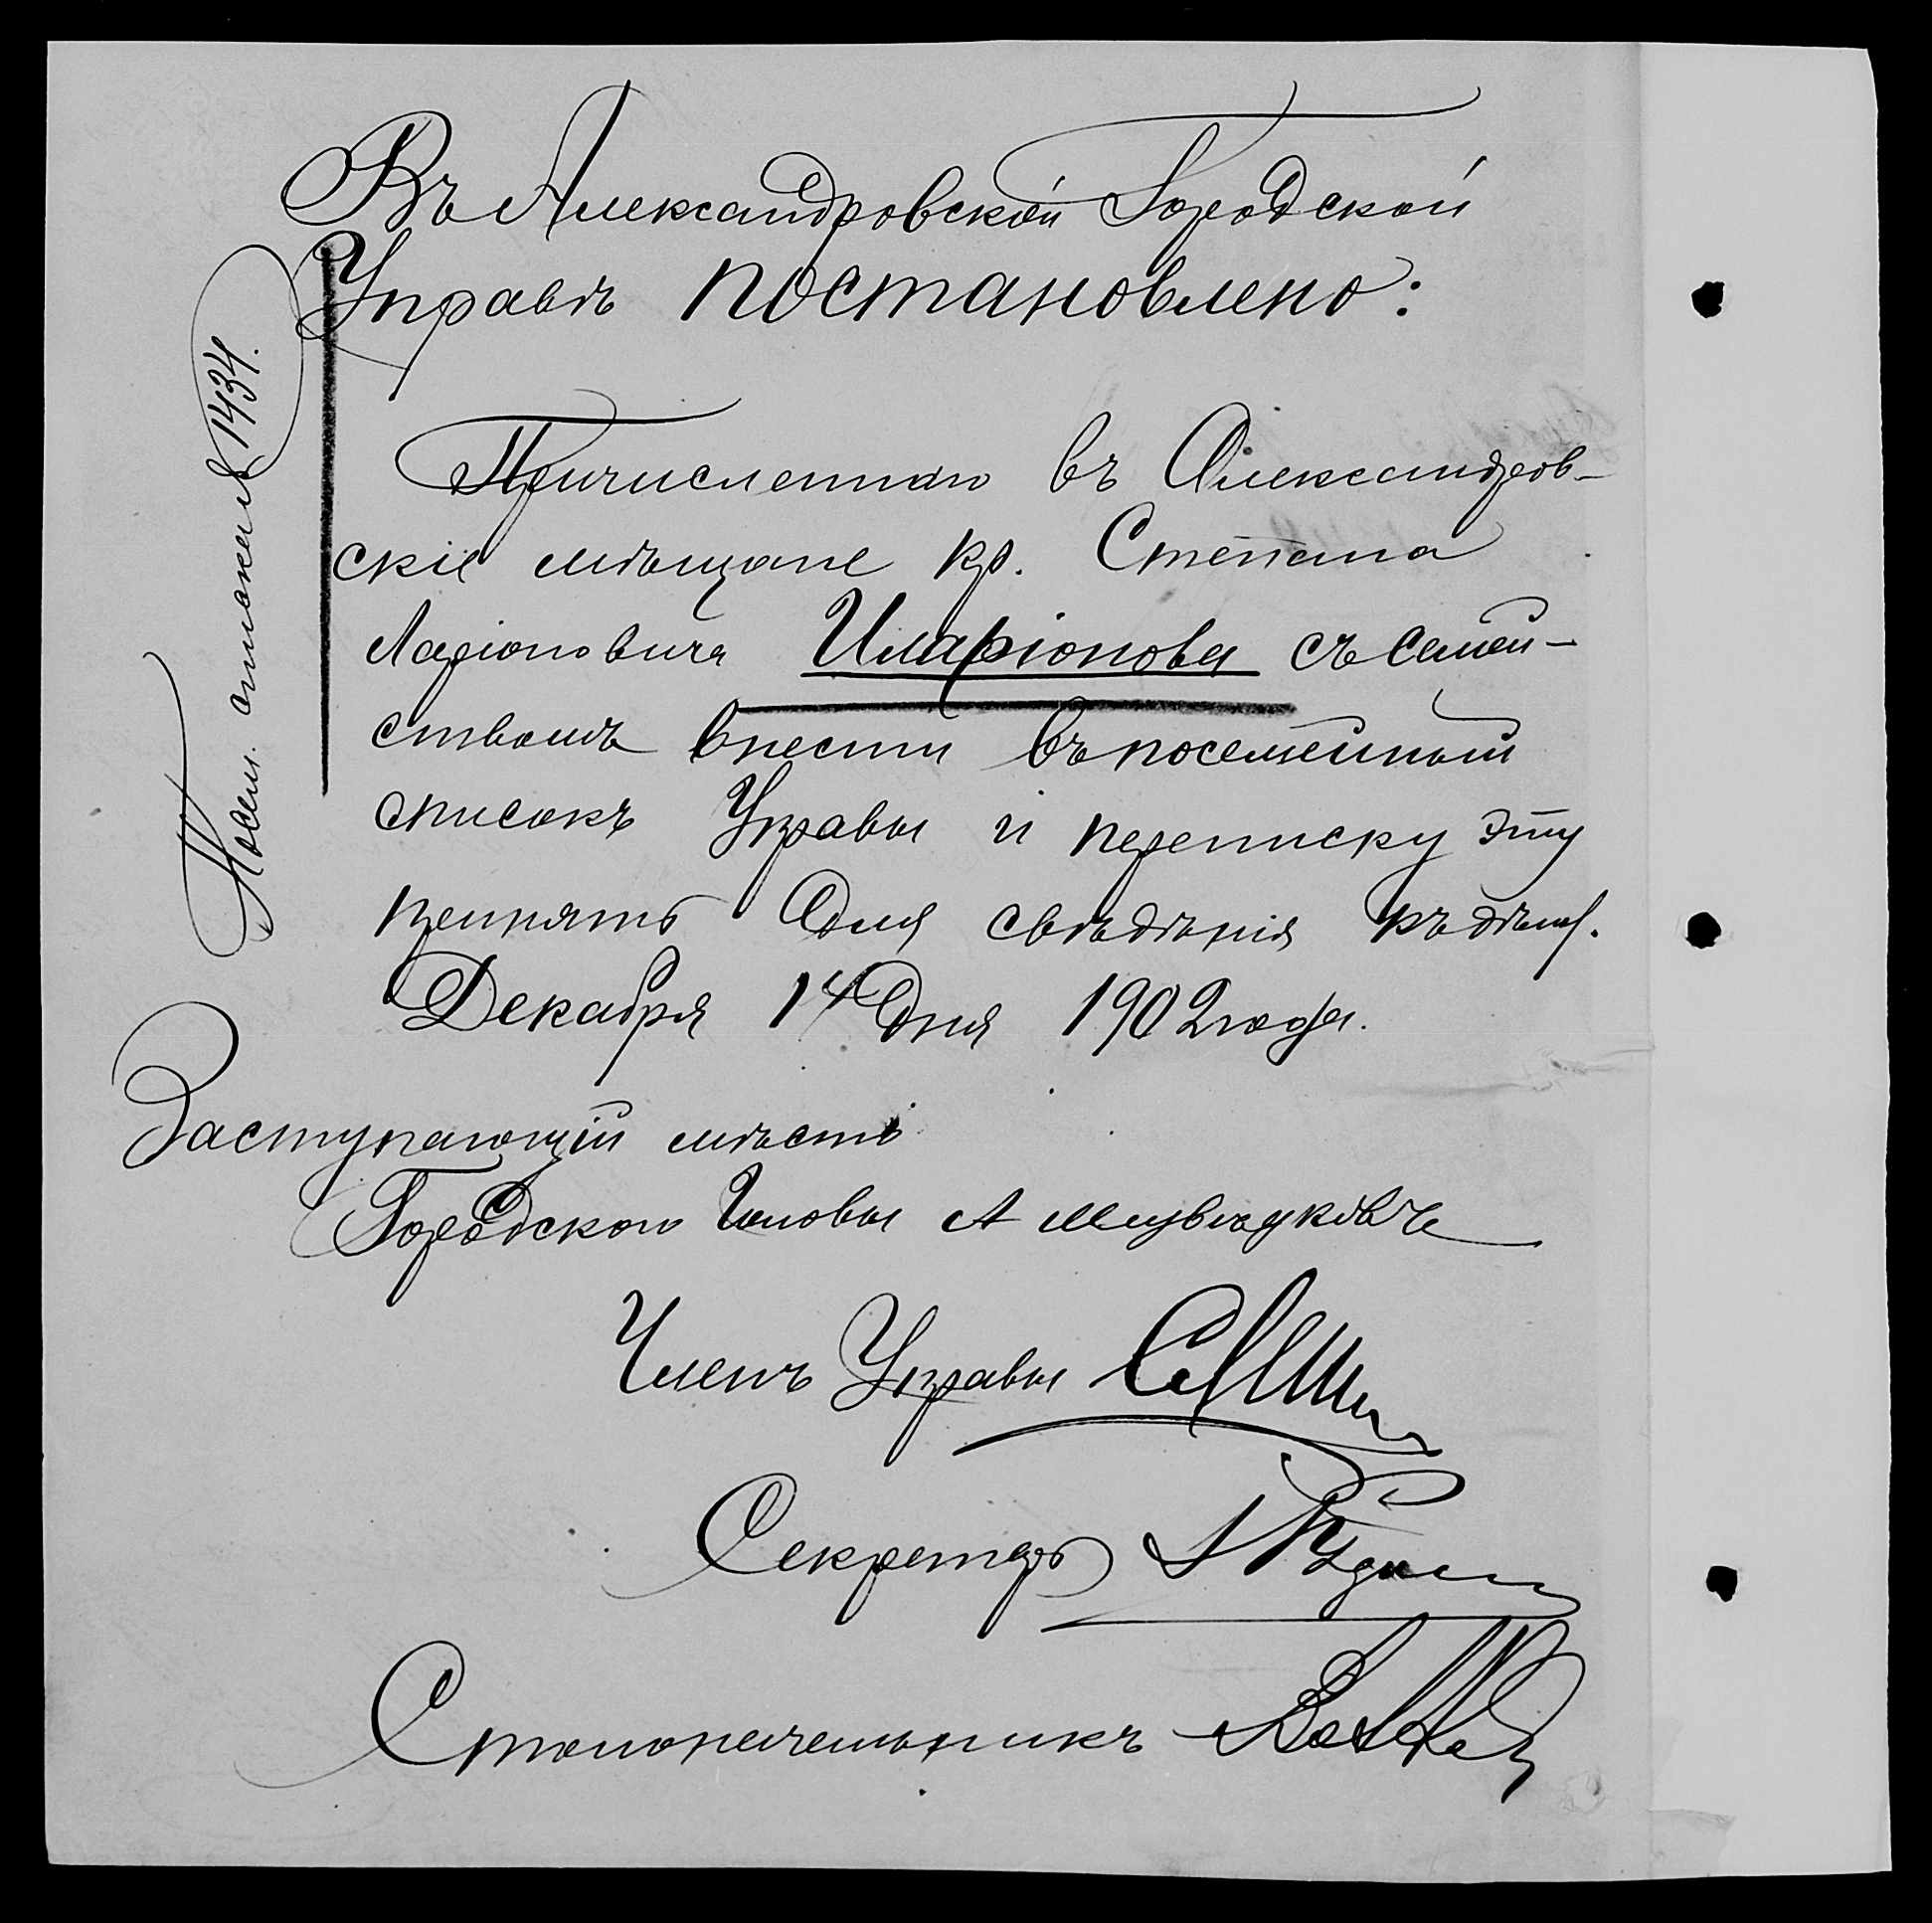 Въ Александровской Городской
Управѣ постановлено:
Причисленнаго въ Александров-
скіе мѣщане кр. Степана
Ларіоновича Иларіонова съ семей-
ствомъ внести въ посемейный
списокъ Управы и переписку эту
принять для свѣдѣнія къ дѣлу.
Декабря 14 дня 1902 года.
Заступающій мѣсто
Городского Головы А
Членъ Управы
Секретарь
Столоначальникъ
Посем. 1434.